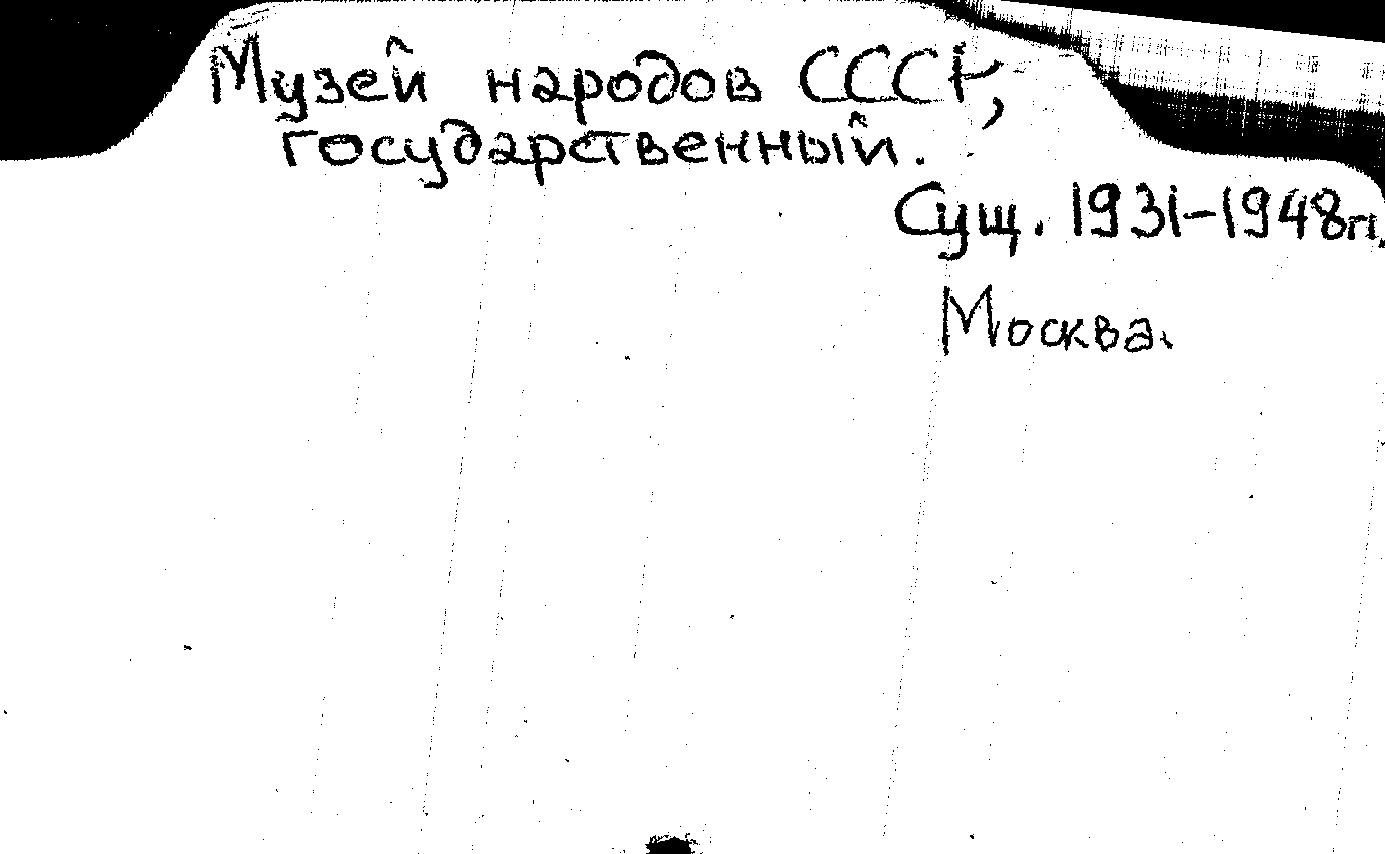 Музей народов СССР,
государственный.
Сущ. 1931-1948гг.
Москва.